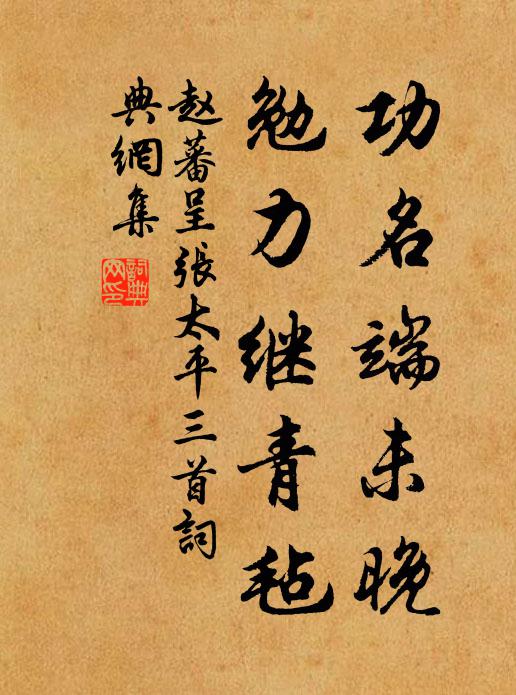 功名端未晚
勉力继青毡
赵蕃呈張太平三首詞
典網集
詞典
网印